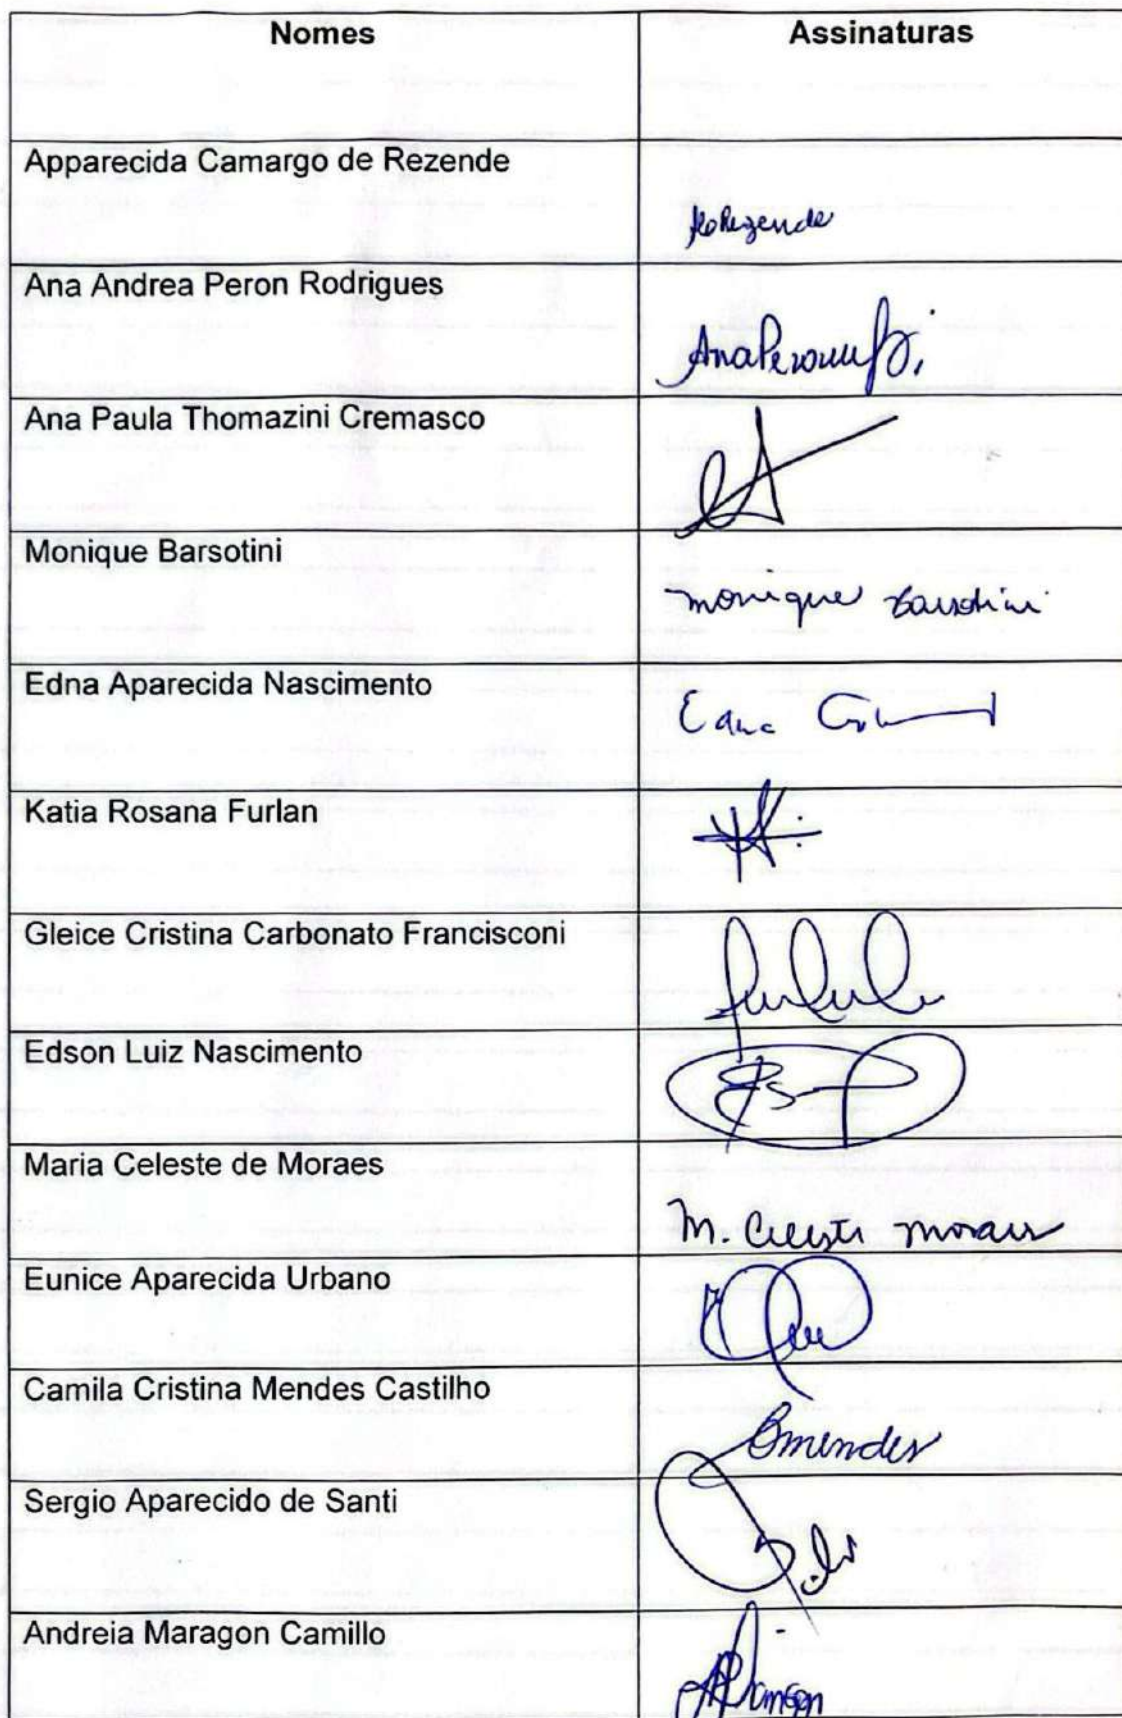 Nomes Assinaturas
Apparecida Camargo de Rezende
Rezende
Ana Andrea Peron Rodrigues
Ana Paula Thomazini Cremasco
Monique Barsotini
monique Barsotini
Edna Aparecida Nascimento
Katia Rosana Furlan
Gleice Cristina Carbonato Francisconi
Edson Luiz Nascimento
Maria Celeste de Moraes
M. Celeste Moraes
Eunice Aparecida Urbano
Camila Cristina Mendes Castilho
Cmendes
Sergio Aparecido de Santi
Andreia Maragon Camillo